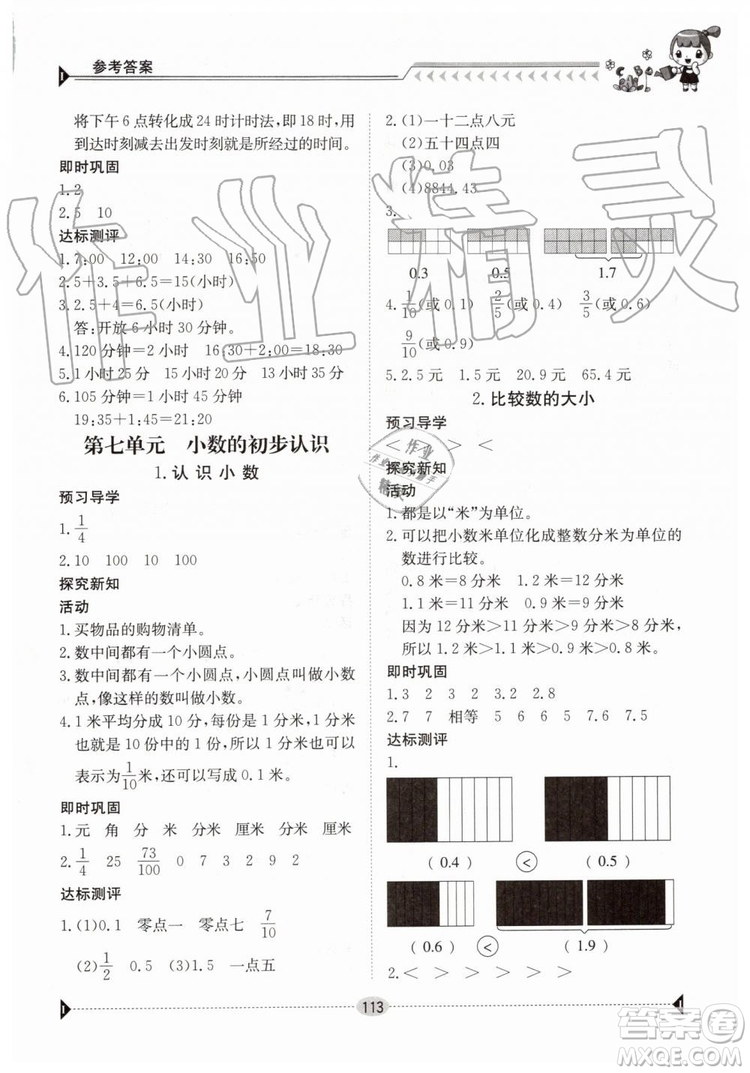 参考答案
将下午6点转化成24时计时法,即18时,用
到达时刻减去出发时刻就是所经过的时间。
即时巩固
1.2
2.5 10
达标测评
1.7:00 12:00 14:30 16:50
2.5+3.5+6.5=15(小时)
3.2.5+4=6.5(小时)
答:开放6小时30分钟。
4.120分钟=2小时 16:30+2:00=18:30
5.1小时25分钟 1小时35分钟
6.105分钟=1小时45分钟
19:35+1:45=21:20
第七单元 小数的初步认识
1.认识小数
预习导学
1.1/4
2.10 100 10 100
探究新知
活动
1.买物品的购物清单。
2.数中间都有一个小圆点。
3.数中间都有一个小圆点,小圆点叫做小数
点,像这样的数叫做小数。
4.1米平均分成10分,每份是1分米,1分米
也就是10份中的1份,所以1分米可以
表示为1/10米,还可以写成0.1米。
即时巩固
1.元 角 分 米 分米 厘米 厘米
2.1/4 25 73/100 7 3 2 9 2
达标测评
1.(1)0.1 零点一 零点七 7/10
(2)1/2 0.5 (3)1.5 一点五
2.(1)一十二点八元
(2)五十四点四
(3)0.03
(4)8844.43
3.
0.3 0.5 1.7
4.1/10(或0.1) 2/5(或0.4) 3/5(或0.6)
9/10(或0.9)
5.2.5元 1.5元 20.9元 65.4元
2.比较数的大小
预习导学
< < > <
探究新知
活动
1.都是以“米”为单位。
2.可以把小数米单位化成整数分米为单位的
数进行比较。
0.8米=8分米 1.2米=12分米
1.1米=11分米 0.9米=9分米
因为12分米>11分米>9分米>8分米
所以1.2米>1.1米>0.9米>0.8米
即时巩固
1.3 2 3 2 3.2 2.8
2.7 7 相等 5 6 6 5 7.6 7.5
达标测评
1.
(0.4) < (0.5)
(0.6) < (1.9)
2.< > > > > >
113
作业精灵
作业
精灵
答案圈
MXQE.COM